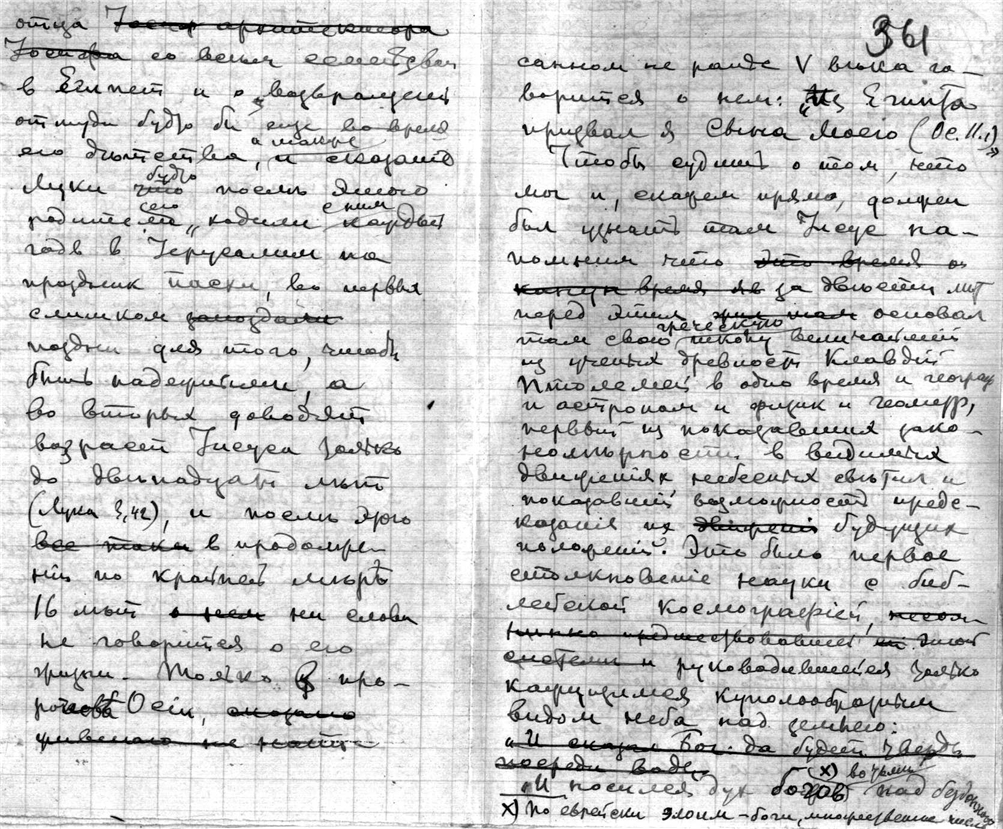 отца Iосиф архитектора
Iосифа со всем семейством
в Египет и о возвращении
откуда будто бы еще во время
его дѣтства, а также и сказание
Луки что будто послѣ этого
родители его ходили с ним каждый
год в Iерусалим на
праздник пасхи, во первых
слишком запоздали
поздни для того, чтобы
быть надежными, а
во вторых доводят
возраст Iисуса только
до двѣнадцати лѣт
(Лука 3,42), и послѣ этого
все таки в продолже-
нiи по крайней мѣрѣ
16 лѣт о нем ни слова
не говорится о его
жизни. Только в про-
рочествѣ Осiи,
361
санном не ранѣе V вѣка го-
ворится о нем: „Из Египта
призвал я Сына Моего (Ос. 11.1)"
Чтобы судить о том, что
мог и, скажем прямо, должен
был узнать там Iисус на-
помним что это время о
канун время яв за двѣсти лѣт
перед этим жил там основал
там свою греческую школу величайшiй
из ученых древности Клавдiй
Птолемей в одно время и географ
и астроном и физик и геометр,
первый из показавших зако-
номѣрность в видимых
движенiях небесных свѣтил и
показавшiй возможность предс-
казанiя их движенiй будущих
положенiй. Это было первое
столкновенiе науки с биб-
лейской космографiей,
системы и руководившейся только
кажущимся куполообразным
видом неба над землею:
„И сказал Бог: да будет твердь
посреди воды
„И носился дух богов (x) во тьмѣ над бездною
x) По еврейски элоим – боги, множественное число